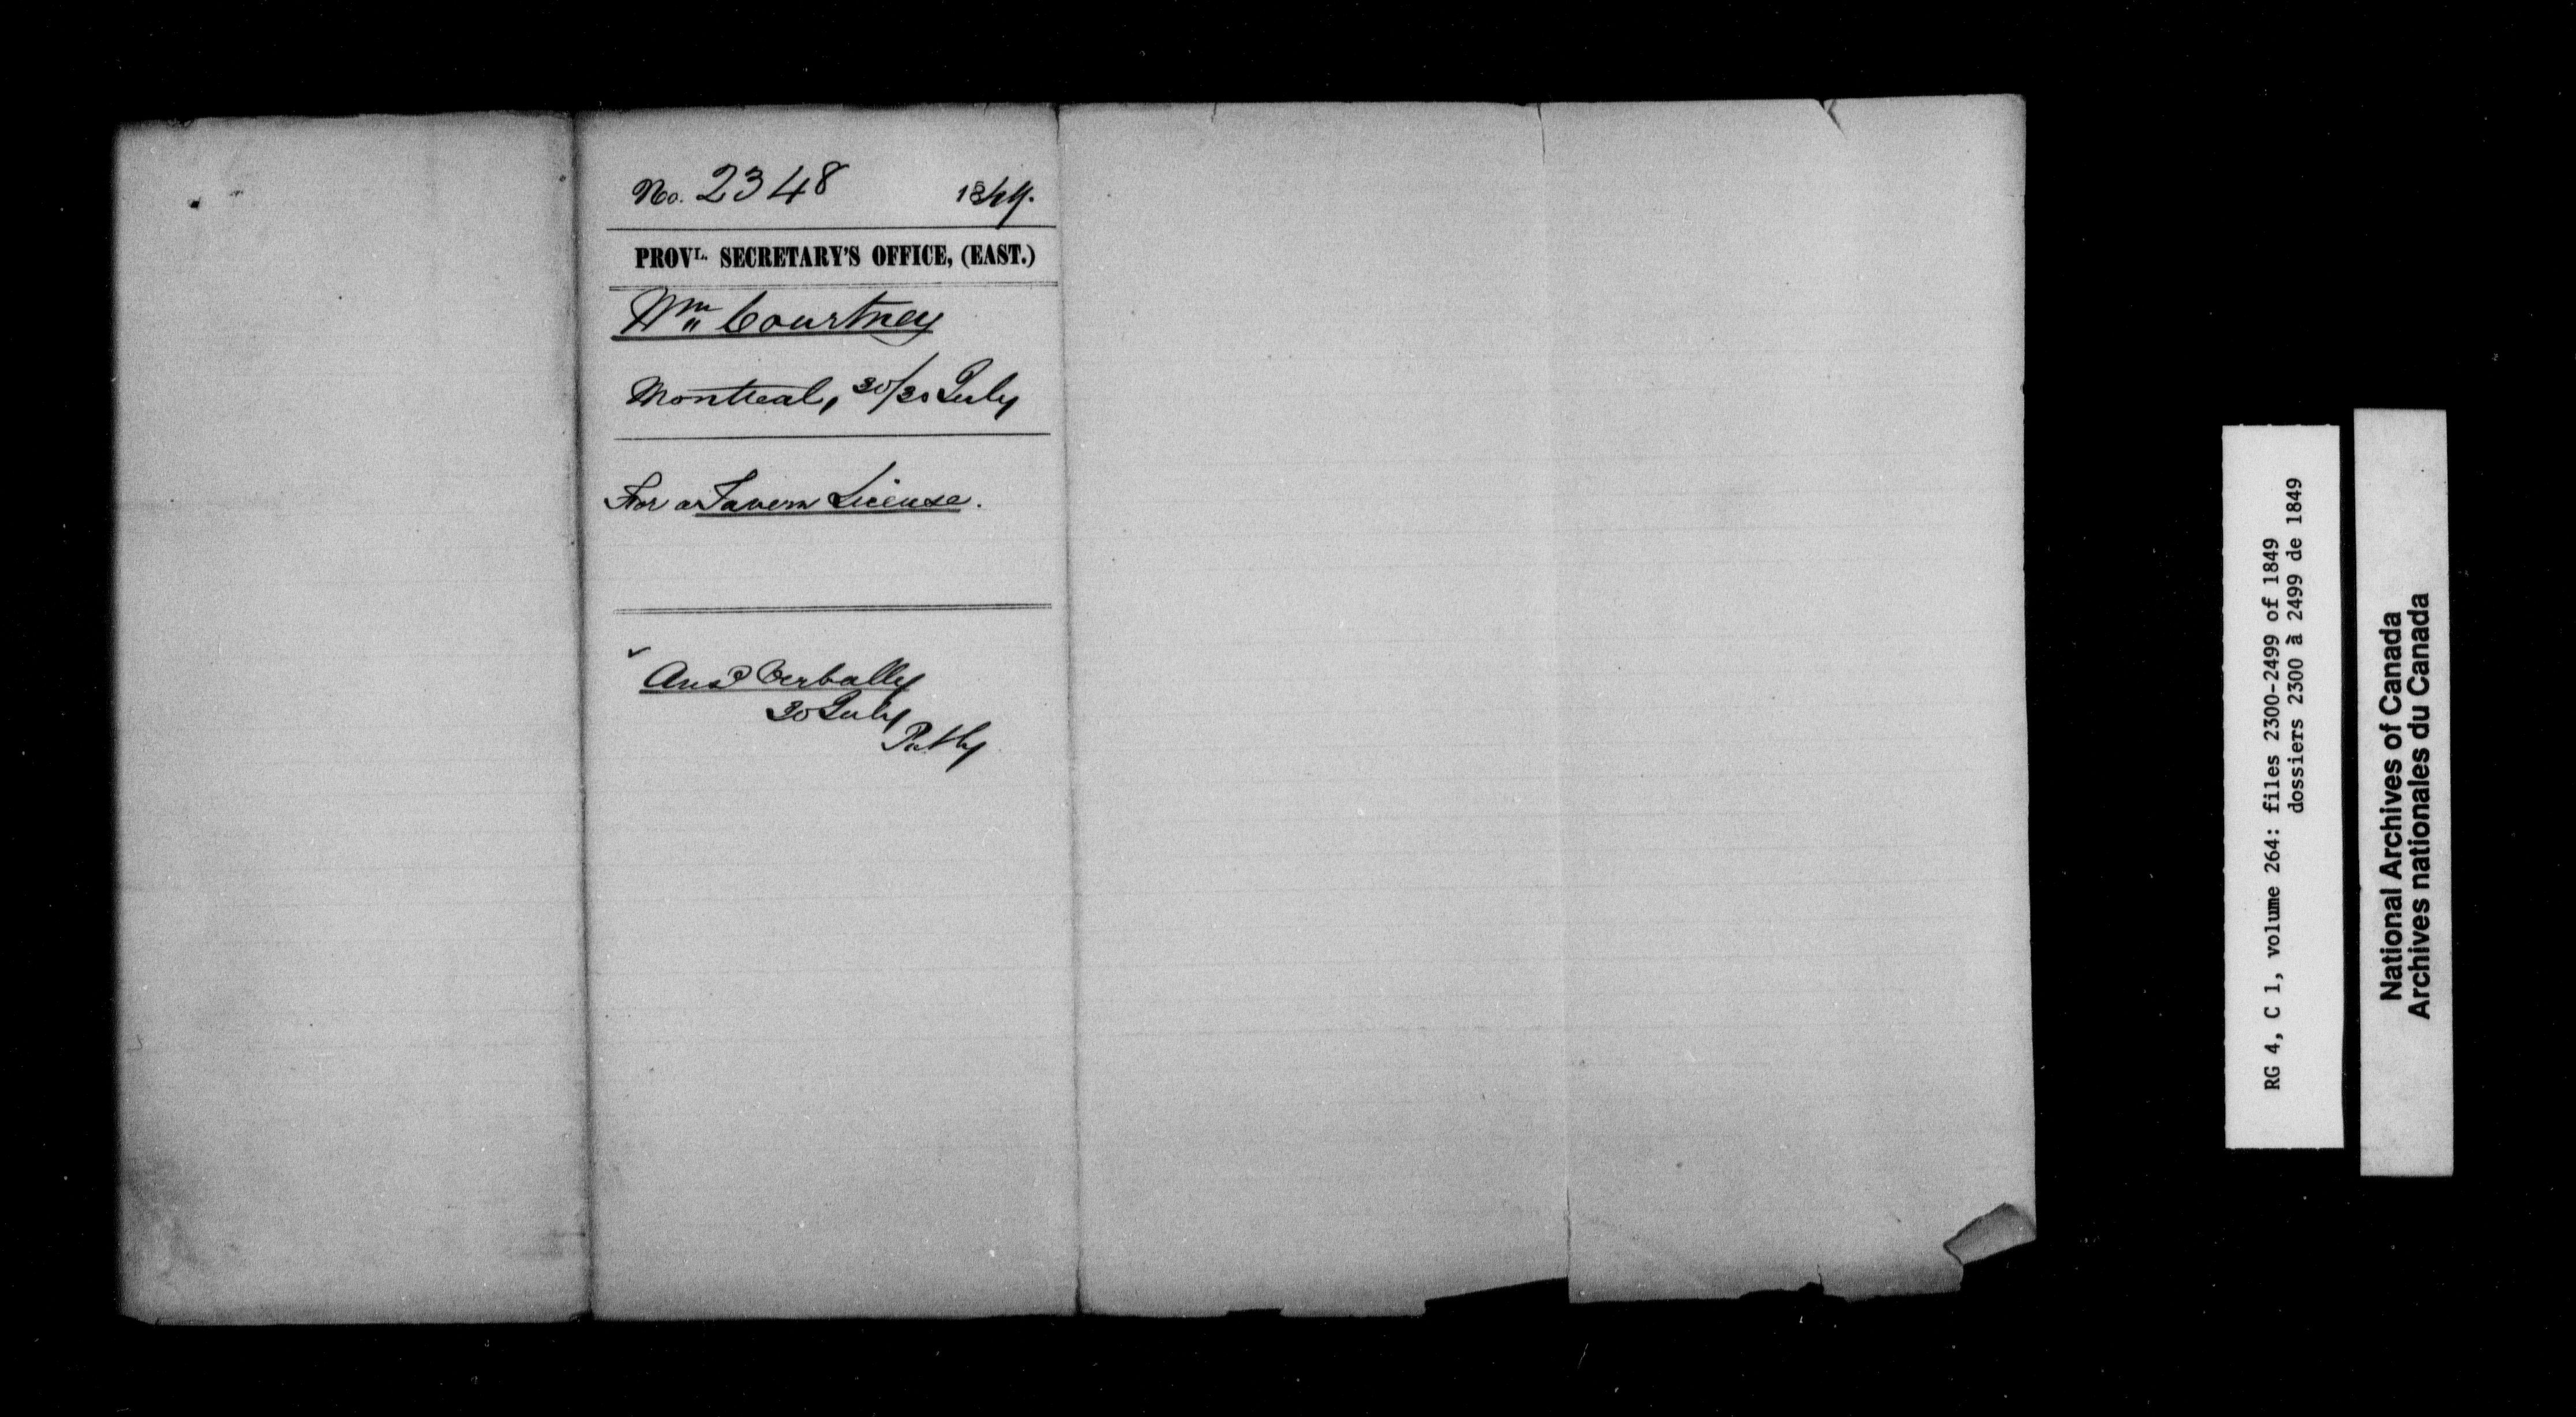 No. 2348 1849.
PROVL. SECRETARY'S OFFICE, (EAST.)
Wm Courtney
Montreal, 30/30 July
For a Tavern License.
Ansd Verbally
30 July
RG 4, C 1, volume 264: files 2300-2499 of 1849
dossiers 2300 à 2499 de 1849
National Archives of Canada
Archives nationales du Canada